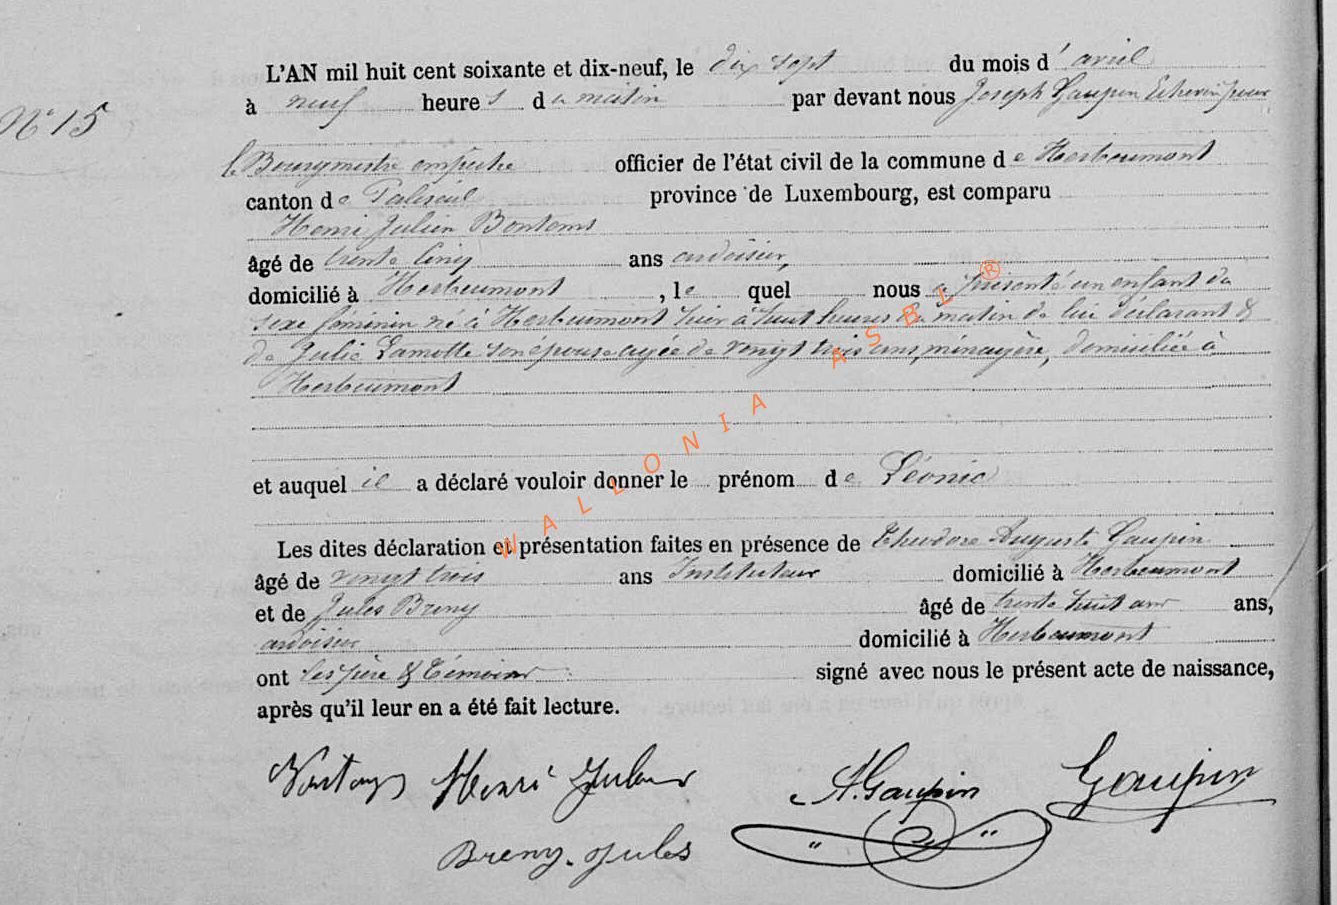 N° 15
L'AN mil huit cent soixante et dix-neuf, le dix sept du mois d'avril
à neuf heures du matin par devant nous Joseph Gaupin Echevin pour
le Bourgmestre empêché officier de l'état civil de la commune de Herbeumont
canton de Paliseul province de Luxembourg, est comparu
Henri Julien Bontems
âgé de trente cinq ans ardoisier,
domicilié à Herbeumont, le quel nous a présenté un enfant du
sexe féminin né à Herbeumont hier à huit heures du matin de lui déclarant &
de Julie Lamotte son épouse agée de vengt trois ans, ménagère, domiciliée à
Herbeumont
et auquel il a déclaré vouloir donner le prénom de Léonie
Les dites déclaration et présentation faites en présence de Théodore Auguste Gaupin
âgé de vengt trois ans Instituteur domicilié à Herbeumont
et de Jules Breny âgé de trente huit ans ans,
ardoisier domicilié à Herbeumont
ont les père & témoins signé avec nous le présent acte de naissance,
après qu'il leur en a été fait lecture.
Henri A. Gaupin Gaupin
Breny. Jules
WALLONIA ASBL ®